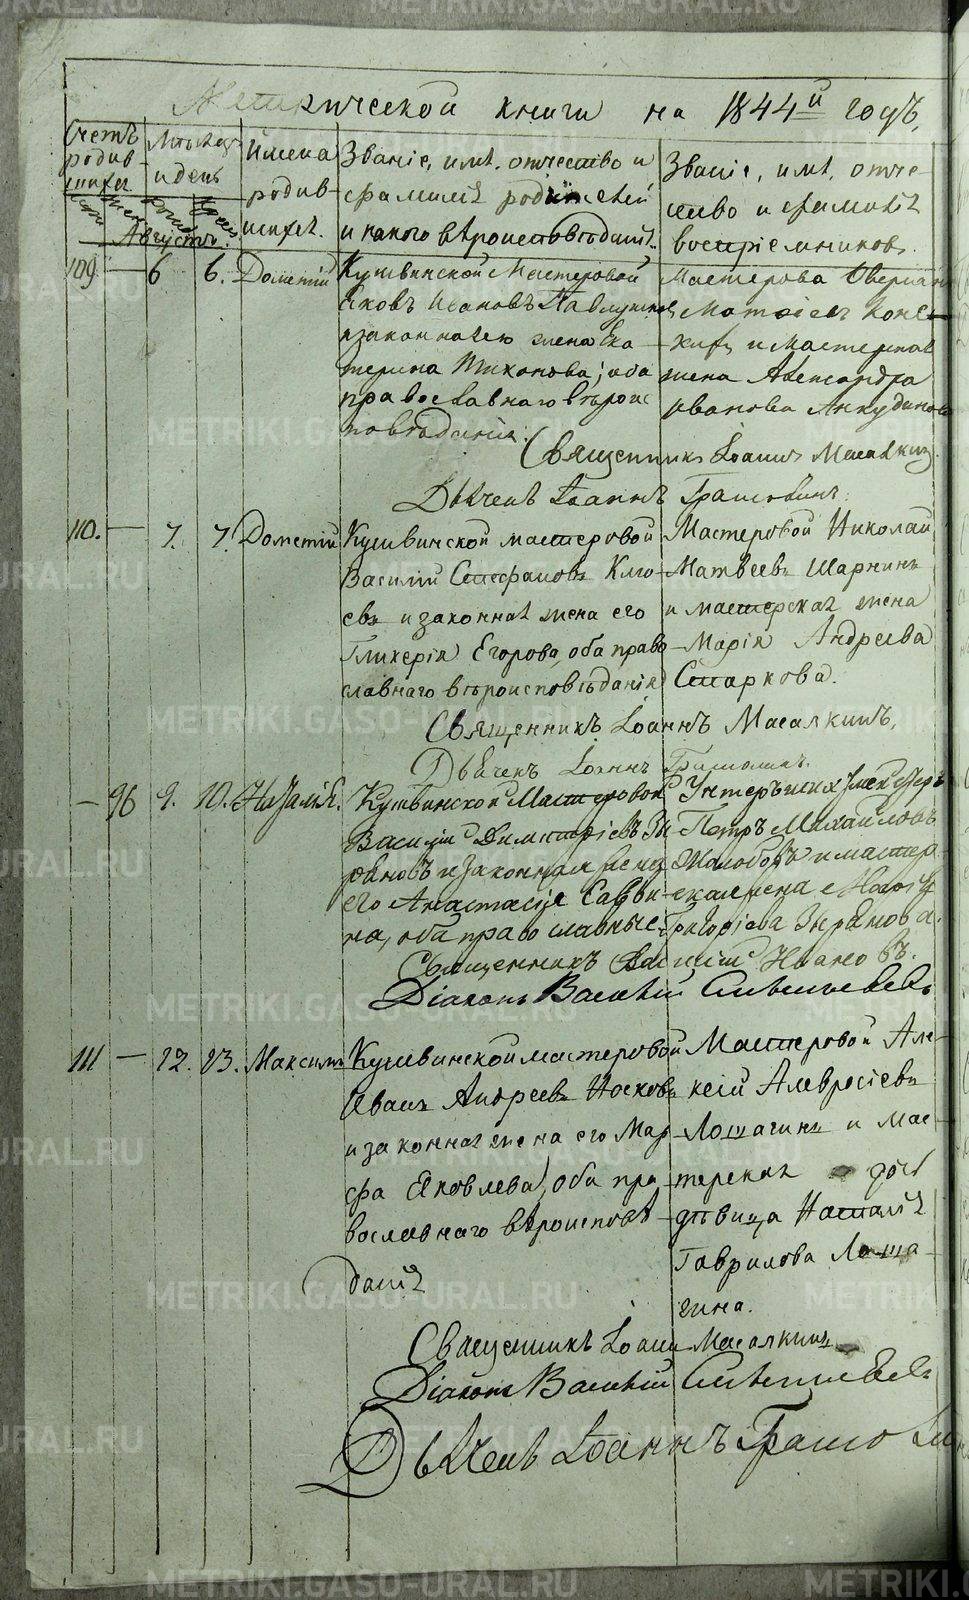 Метрической книги на 1844й годъ,
Счетъ родив-шихсѧ
Мѣсѧцъ и день
Имена родив-шихсѧ.
Званіе, имѧ, отчество и фамилія родителей и какого вѣроисповѣданія.
Званіе, имѧ, отче-ство и фамилія воспріемниковъ.
Августъ.
109 — 6 6. Дометій
Кушвинской Мастеровой
Яковъ Ивановъ Павлушковъ
и законная ею жена Ека-
терина Тихонова; оба
православнаго вѣроис-
повѣданія.
Мастерова Аверіана
Матвіева
и Мастерская
жена Александра
Иванова Анкудинова
Священникъ Іоаннъ Масалкинъ.
Дьячекъ Іоаннъ
110. — 7. 7. Дометій
Кушвинской мастеровой
Василій Стефановъ Клю-
евъ и законная жена его
Гликерія Егорова, оба право-
славнаго вѣроисповѣданія
Мастеровой Николай
Матвеевъ Шарнинъ
и мастерская жена
Марія Андреева
Старкова.
Священникъ Іоаннъ Масалкинъ,
Дьячекъ Іоаннъ
— 96 9. 10. Наталія.
Кушвинской Мастеровой
Василій Димитріевъ Зы-
рѧновъ и законная жена
его Анастасія Савви-
на, оба православные
Унтеръ
Петръ Михайловъ
и мастер-
ская жена Марія
Григоріева Зырянова.
Священникъ Василій Ивановъ.
Діаконъ Василій
111 — 12. 13. Максимъ
Кушвинской мастеровой
Иванъ Андреевъ Носковъ
и законная жена его Мар-
фа Яковлева, оба пра-
вославнаго вѣроисповѣ-
данія
Мастеровой Але-
ксій Амвросіевъ
Лошагинъ и мас-
терская дочь
дѣвица Наталія
Гаврилова Лоша-
гина.
Священникъ Іоаннъ Масалкинъ
Діаконъ Василій
Дьячекъ Іоаннъ
METRIKI.GASO-URAL.RU